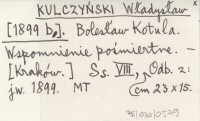 KULCZYŃSKI Władysław
[1899 b.]. Bolesław Kotula.
Wspomnienie pośmiertne. –
[Kraków.] Ss. VIII, Odb. z:
jw. 1899. MT cm 23 x 15.